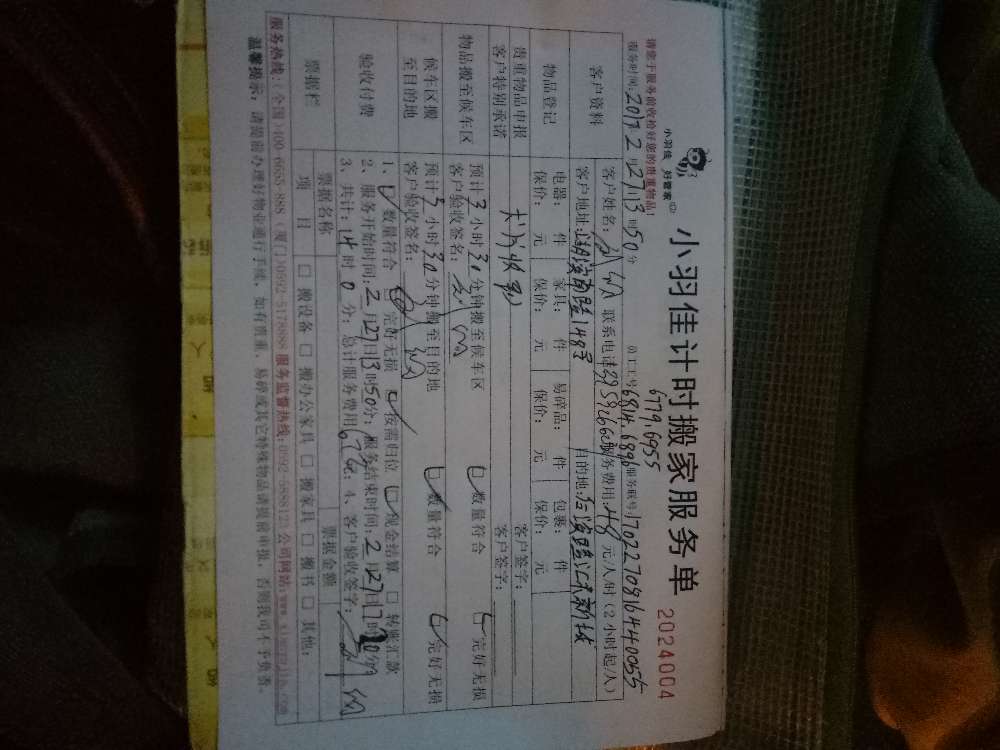 小羽佳 好管家
小羽佳计时搬家服务单
2024004
请您于服务前收检好您的贵重物品!
6779.6955
服务时间:2017 2月27日13时50分 员工工号:6814.6896 服务账号:1702270816440055
客户资料
客户姓名: 联系电话: 服务费用:48元/人/时(2小时起/人)
客户地址:湖滨南路148号 目的地:
物品登记
电器: 件 家具: 件 易碎品: 件 包裹: 件
保价: 元 保价: 元 保价: 元 保价: 元
贵重物品申报 客户签字:
客户特别承诺 客户签字:
物品搬至候车区
预计3小时30分钟搬至候车区
客户验收签名:
数量符合 完好无损
候车区搬至目的地
预计3小时30分钟搬至目的地
客户验收签名:
数量符合 完好无损
验收付费
1、数量符合 完好无损 按需归位 现金结算 □ 转账汇款
2、服务开始时间:2月27日13时50分;服务结束时间:2月27日17时20分
3、共计:14时0分;总计服务费用672元;4、客户验收签字:
票据栏
票据名称 票据金额
项目 □ 搬设备 □ 搬办公家具 □ 搬家具 □ 搬书 □ 其他:
服务热线:(全国)400-6655-888 (厦门)0592-5178888 服务监督热线:0592-5888123 公司网站:
温馨提示:请提前办理好物业通行手续,如有贵重、易碎或其它特殊物品请提前申报,否则我司不予负责。